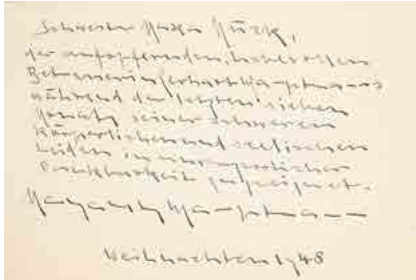 Schwester Maxa Mück,
der aufopfernden, liebevollen
Betreuerin Gerhart Hauptmanns
während der letzten sieben
Monate seiner schweren
körperlichen und seelischen
Leiden in unermesslicher
Dankbarkeit zugeeignet.
Margarete Hauptmann
Weihnachten 1948